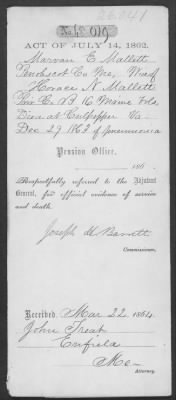 26.041
ACT OF JULY 14, 1862.
Marvan E. Mallett
Penobscot Co Me, Wid of
Horace N. Mallett
Priv Co. 16 Maine Vols
Died at Culpepper Va.
Dec 29 1863 of pneumonia
Pension Office,
186
Respectfully referred to the Adjutant
General, for official evidence of service
and death.
Joseph H Barrett
Commissioner.
Received, Mar 22 1864
John Treat
Enfield
Me
Attorney.